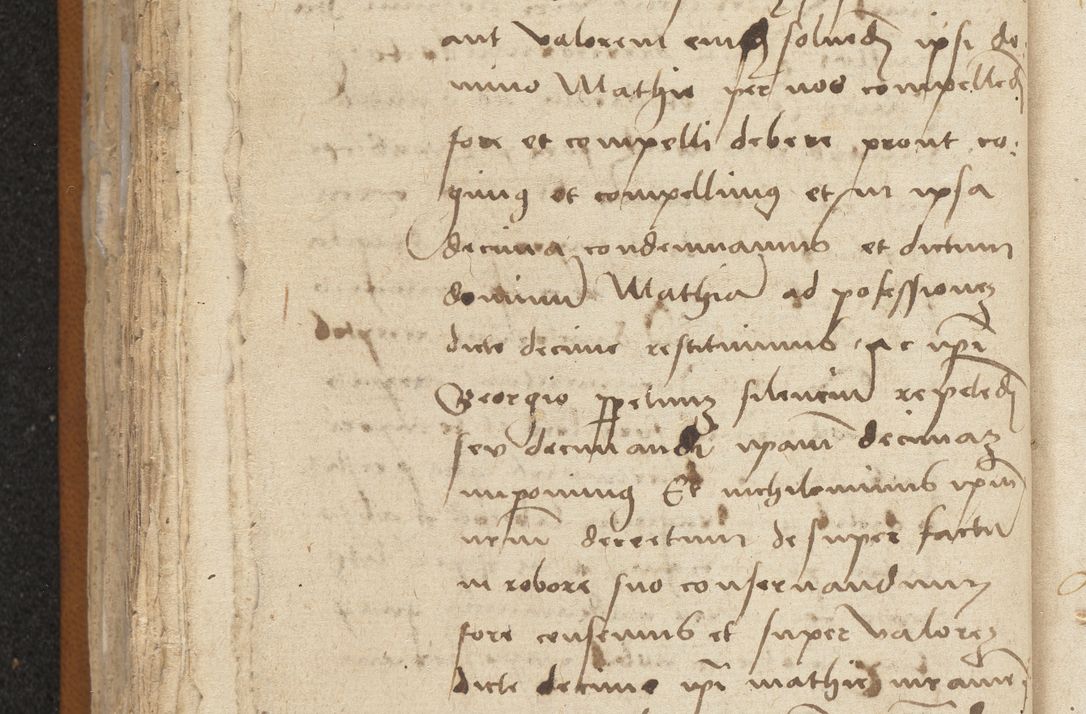 aut valorem eius solvend ipsi do
mino Mathie per nos compellend
fore et compelli debere prout co
gimus et compellimus et in ipsa
decima condemnamus et dictum
dominu Mathia ad possessionem
dicte decime restituimus ac ipsi
Georgio perpetuum silenciu repetend
seu decimandi ipsam decimam
imponimus Et nichilominus ipm
nrm decretum desuper factu
in robore suo conservandum
fore censemus et super valorem
dicte decime ipsi mathie